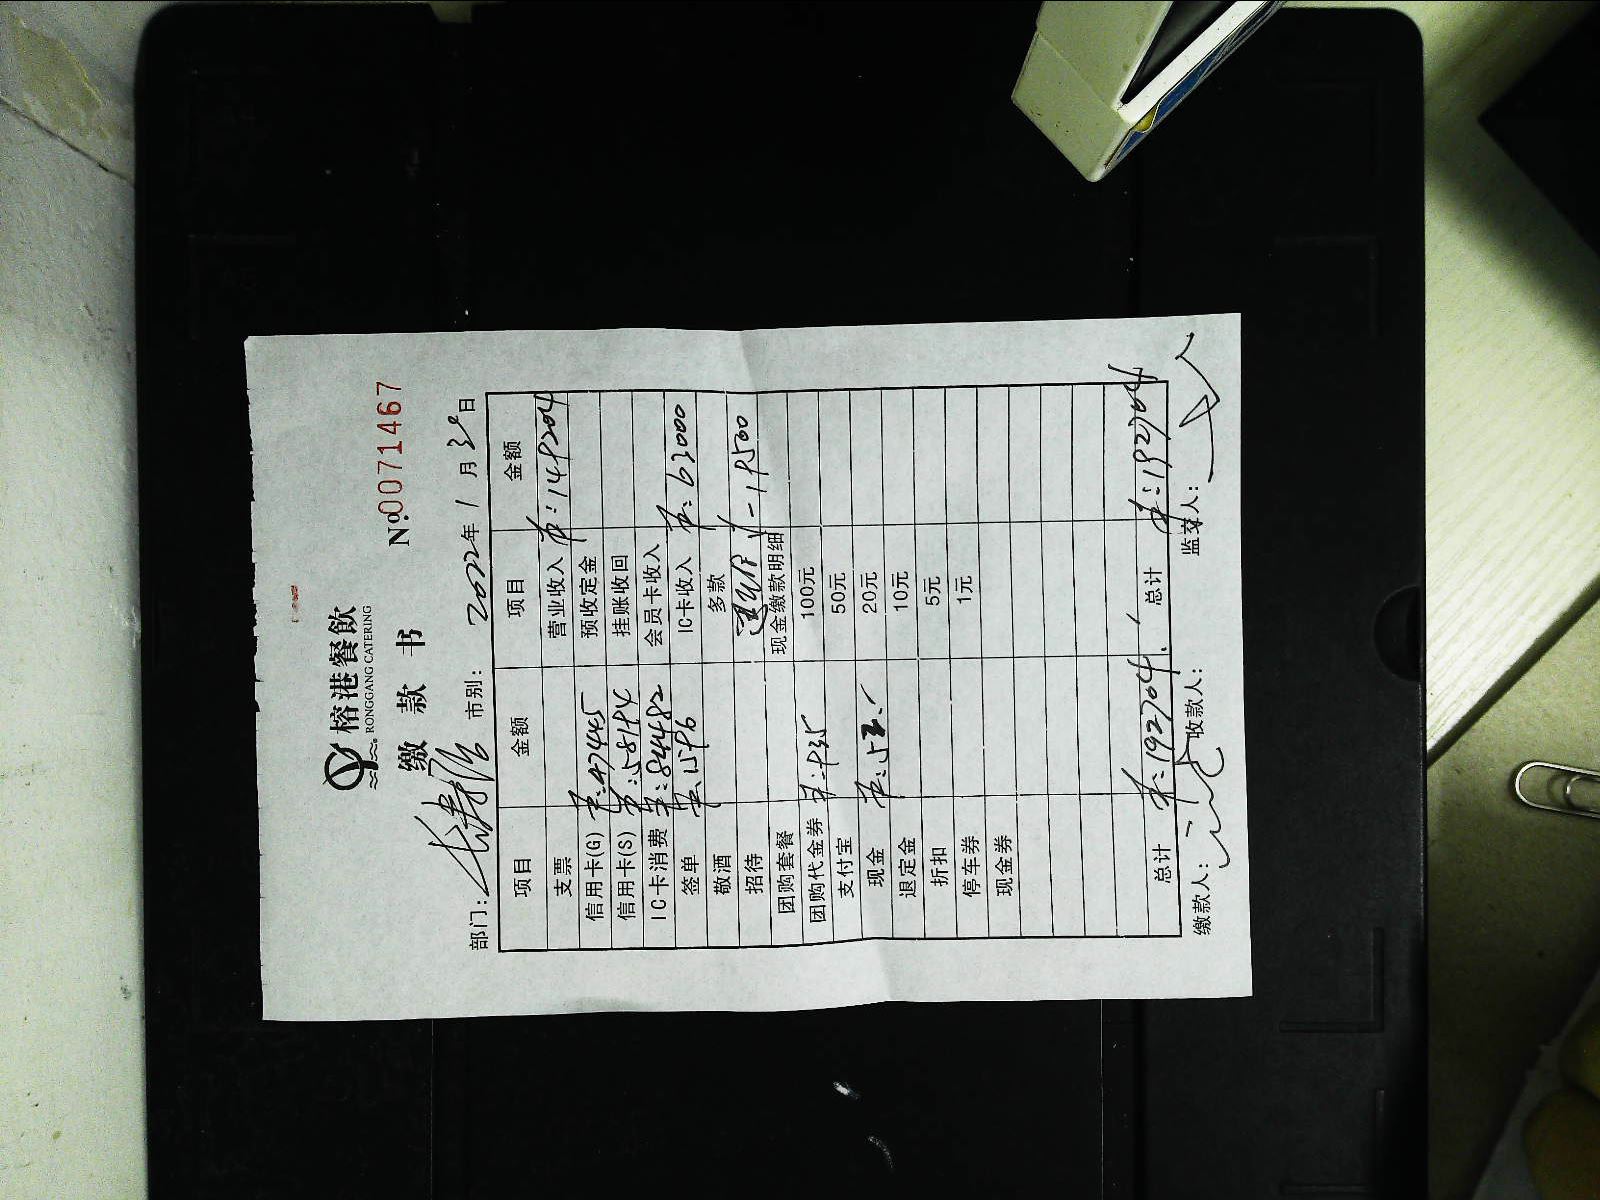 榕港餐飲
RONGGANG CATERING
缴款书 №0071467
部门: 市别: 2022年1月30日
项目 金额 项目 金额
支票 营业收入 ¥:149204
信用卡(G) ¥:47445 预收定金
信用卡(S) ¥:58194 挂账收回
IC卡消费 ¥:84482 会员卡收入
签单 ¥:1596 IC卡收入 ¥:63000
敬酒 多款
招待 ¥-19500
团购套餐 现金缴款明细
团购代金券 ¥:935 100元
支付宝 50元
现金 ¥:52 20元
退定金 10元
折扣 5元
停车券 1元
现金券
总计 ¥:192704 总计 ¥:192704
缴款人: 收款人: 监交人: